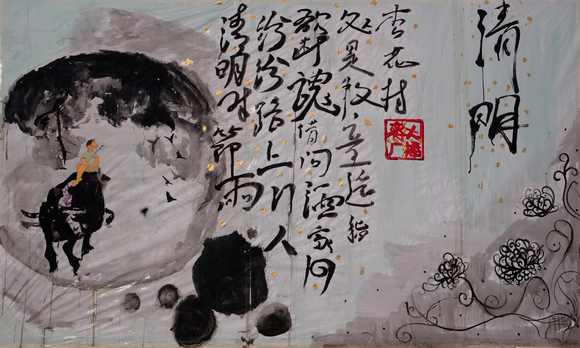 清明
清明时節雨
纷纷路上行人
欲断魂借问酒家何
处是牧童遥指
杏花村